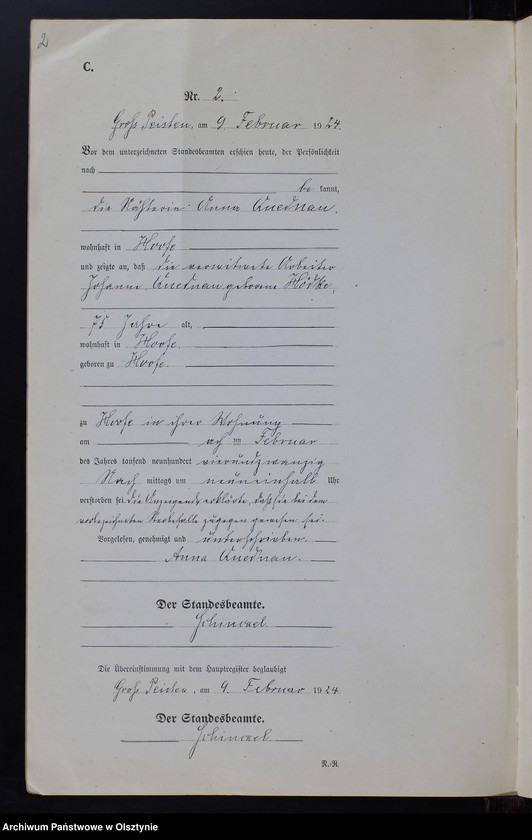 2
C.
Nr. 2.
Groß Peisten, am 9. Februar 1924.
Vor dem unterzeichneten Standesbeamten erschien heute, der Persönlichkeit
nach
be kannt,
die Anna Quednau,
wohnhaft in Hoofe
und zeigte an, daß die verwitwete Arbeiter
Johanne Quednau geborene Hödke,
75 Jahre alt,
wohnhaft in Hoofe,
geboren zu Hoofe,
zu Hoofe in ihrer Wohnung
am acht ten Februar
des Jahres tausend neunhundert vierundzwanzig
Nach mittags um neuneinhalb Uhr
verstorben sei. Die Anzeigende erklärte, daß sie bei dem
vorbezeichneten Sterbefalle zugegen gewesen sei.
Vorgelesen, genehmigt und unterschrieben.
Anna Quednau.
Der Standesbeamte.
Schimmel
Die Übereinstimmung mit dem Hauptregister beglaubigt
Groß Peisten, am 9. Februar 1924
Der Standesbeamte.
Schimmel
N.-R.
Archiwum Państwowe w Olsztynie